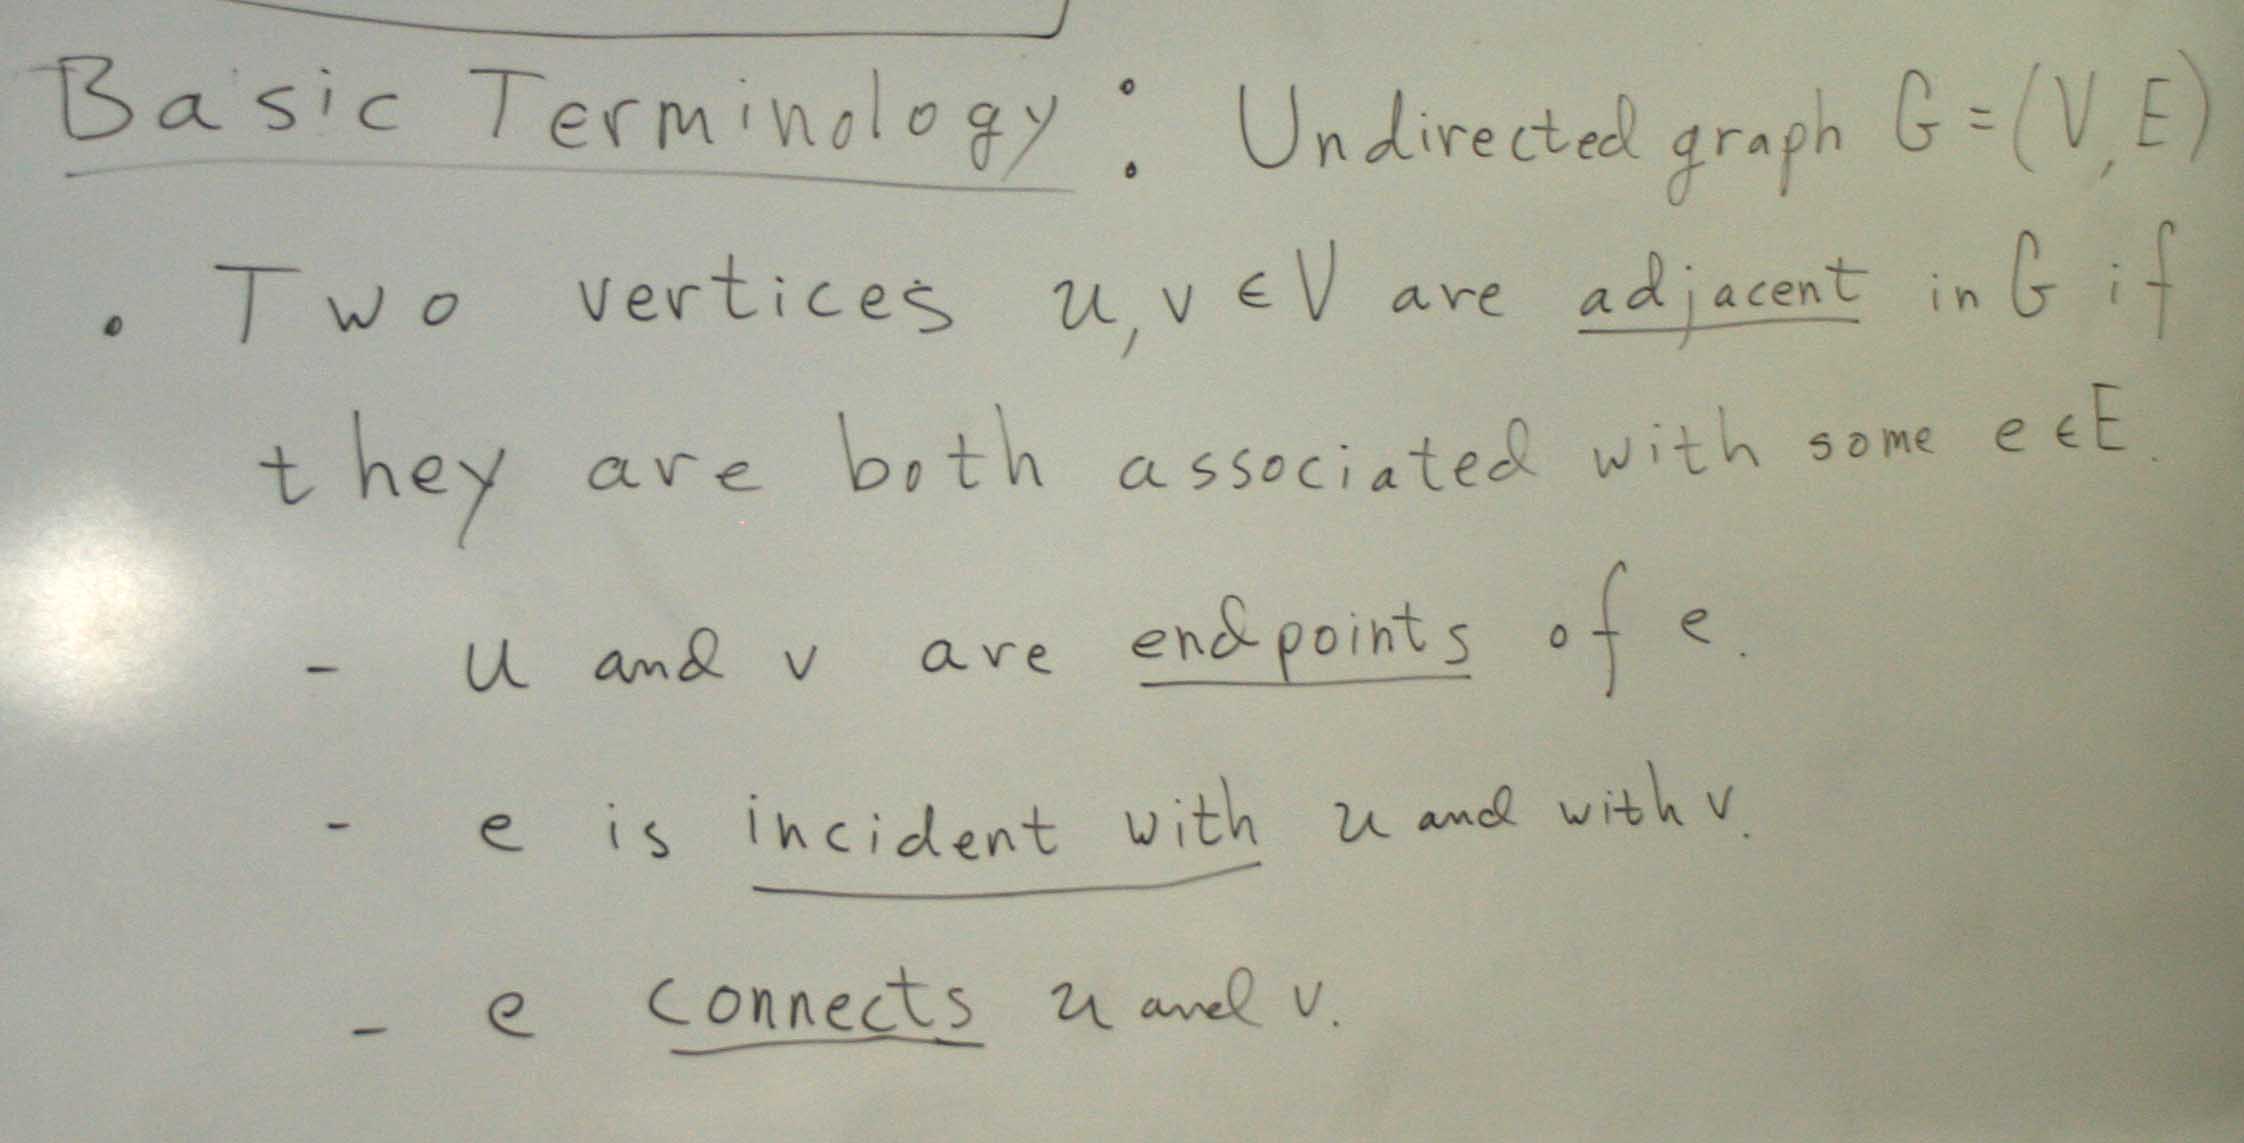 Basic Terminology: Undirected graph G=(V,E)
• Two vertices u,v ∈ V are adjacent in G if
they are both associated with some e ∈ E.
- u and v are endpoints of e.
- e is incident with u and with v.
- e connects u and v.